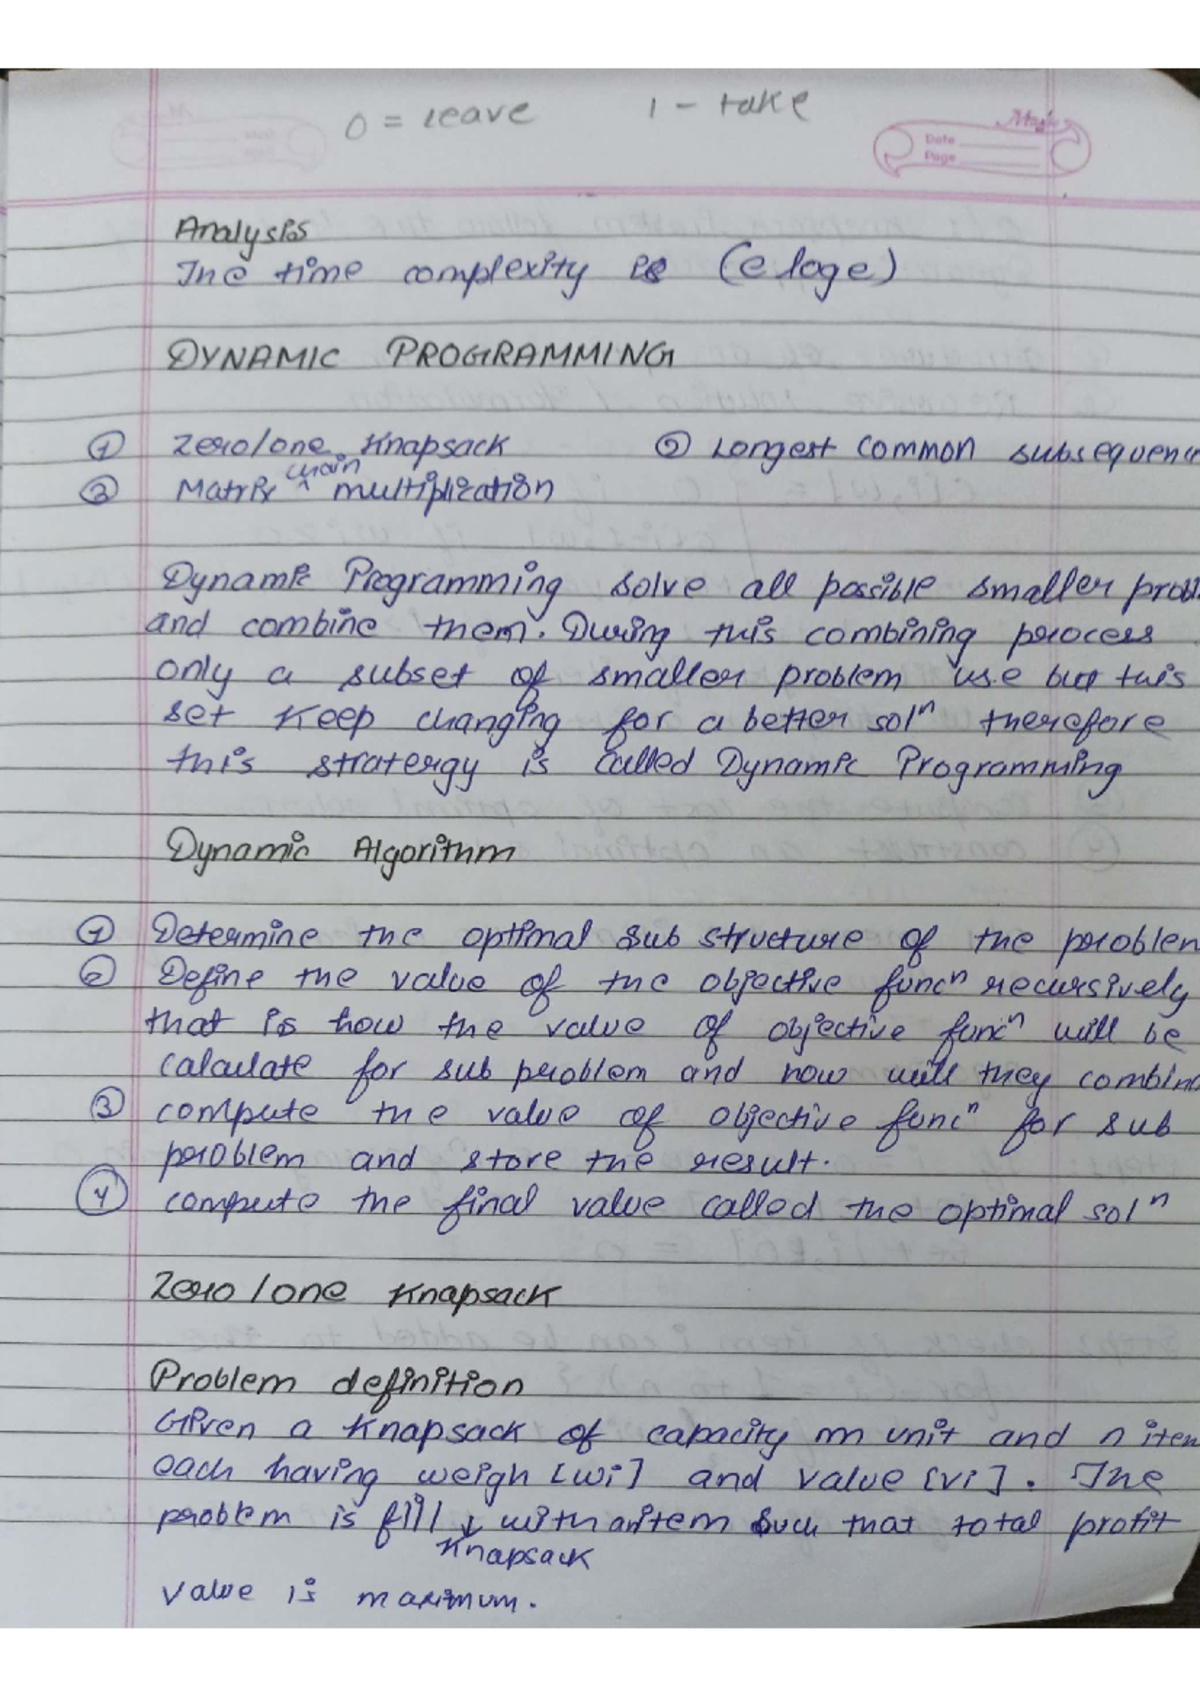 0 = leave 1 - take
Date
Page
Analysis
The time complexity is (e loge)
DYNAMIC PROGRAMMING
① Zero/one Knapsack ② Longest common subsequenc
③ Matrix chain multiplication
Dynamic Programming solve all possible smaller probl
and combine them. During this combining process
only a subset of smaller problem use but this
set keep changing for a better solⁿ therefore
this stratergy is called Dynamic Programming
Dynamic Algorithm
① Determine the optimal sub structure of the problem
② Define the value of the objective funcⁿ recursively
that is how the value of objective funcⁿ will be
calculate for sub problem and how will they combine
③ compute the value of objective funcⁿ for sub
problem and store the result.
④ compute the final value called the optimal solⁿ
Zero/one Knapsack
Problem definition
Given a knapsack of capacity m unit and n item
each having weigh [wi] and value [vi]. The
problem is fill ↓ with an item such that total profit
knapsack
value is maximum.